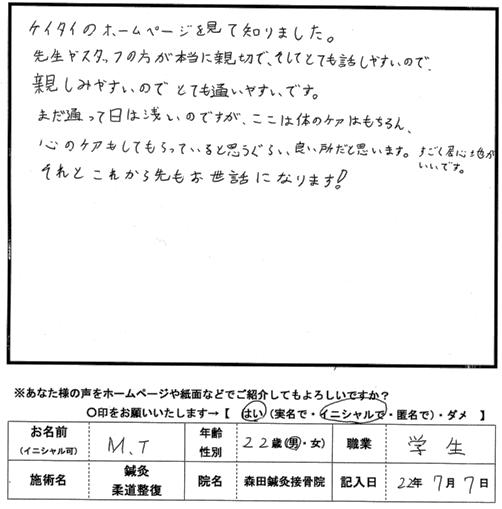 ケイタイのホームページを見て知りました。
先生やスタッフの方が本当に親切で、そしてとても話しやすいので、
親しみやすいのでとても通いやすいです。
まだ通って日は浅いのですが、ここは体のケアはもちろん、
心のケアもしてもらっていると思うぐらい、良い所だと思います。すごく居心地が
いいです。
それとこれから先もお世話になります!
※あなた様の声をホームページや紙面などでご紹介してもよろしいですか?
〇印をお願いいたします→【 はい(実名で・イニシャルで・匿名で)・ダメ 】
お名前
(イニシャル可)
M.T
年齢
性別
22歳(男・女)
職業
学生
施術名
鍼灸
柔道整復
院名
森田鍼灸接骨院
記入日
22年7月7日